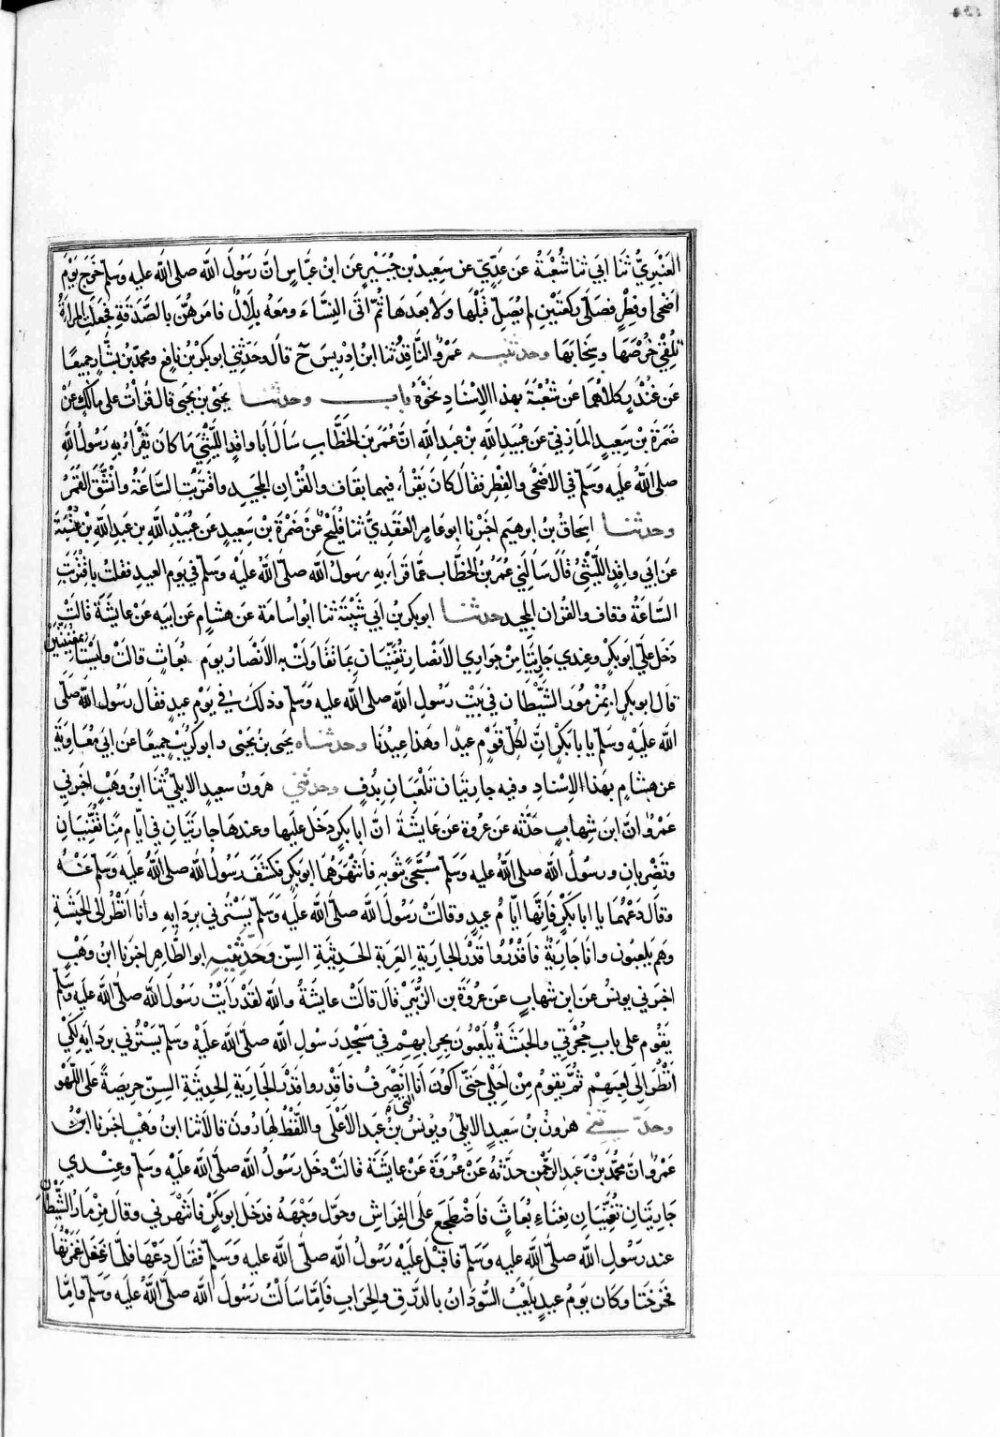 العَنْبَرِيُّ ثنا ابي ثنا شُعْبَةُ عَن عَدِيّ عن سَعِيد بن جُبَيْرٍ عَن ابْن عبَّاسٍ انَّ رَسُولَ الله صلى الله عليه وسَلّم خَرَج يَوْمَ
اَضحى اوفِطْرٍ فصَلّى ركعَتَيْنِ لم يُصَلّ قَبْلَها ولا بعدَهَا ثُمّ اتى النِسَّاءَ ومَعَهُ بِلَالٌ فامَرَهُنَّ بالصَّدَقَةِ فجَعَلَتِ المرأةُ
تُلْقِي خُرْصَهَا وسِخَابَهَا وحدثنيه عَمْرٌو النَّاقِدُ ثنا ابنُ اِدْرِيسَ ح قال وحَدّثنِي ابوبكر بْنُ نافعٍ ومحمّد بْنُ بشَّارٍ جميعًا
عَن غُنْدَرٍ كلاهُمَا عَن شعْبَةَ بهذا الاِسْنَادِ نحْوَهُ باب وحدثنا يَحْيَى بْنُ يَحْيَى قال قَرأتُ على مالكٍ عَنْ
ضَمْرَةَ بْنِ سَعِيدٍ المَازِنِيّ عَن عُبَيْدِ اللّهِ بْنِ عَبْدِ اللّهِ انَّ عُمَرَ بنَ الخَطَّابِ سَألَ أبا واقِدٍ اللَّيْثِيَّ مَا كانَ يَقْرَاُ بِهِ رَسُولُ اللّهِ
صلى اللّهُ علَيه وسَلّم في الأضْحَى والفِطْرِ فقالَ كانَ يَقْرَأُ فيهما بقَاف والقُرْانِ المجيدِ واقترَبَتِ السّاعَةُ وانْشَقَّ القَمَرُ
وحدثنا اسحَاقُ بنُ ابرهيم اَخْبَرَنا ابوعَامِرٍ العَقَدِيُّ ثنا فُلَيْحٌ عَنْ ضَمْرَةَ بْنِ سَعِيدٍ عَن عُبَيْدِ اللّهِ بنِ عَبدِ اللّهِ بْنِ عُتْبَةَ
عَن ابي واقِدٍ اللَّيْثِيّ قالَ سَالَنِي عُمَرُ بْنُ الخَطَّاب عَمَّا قَرَاَ بِهِ رَسُولُ اللّه صَلّى اللّهُ عَلَيْهِ وسَلّم في يَومِ العِيدِ فقلتُ بِاقْتَرَبَتِ
السَّاعَةُ وقاف والقُران المجيد حدثنا ابوبكر بنُ ابي شَيْبَةَ ثنا ابُو اُسَامَةَ عَن هِشَامٍ عَن ابِيهِ عَنْ عايشَةَ قالَتْ
دَخَلَ عَلَيّ ابوبكْرٍ وعِندي جَارِيَتَانِ مِنْ جَوارِي الأنْصَارِ تُغَنِّيَانِ بِمَا تَقَاوَلَتْ بِهِ الأنْصَارُ يومَ بُعَاثٍ قالتْ ولَيْسَتَا بمُغَنِّيَتَيْنِ
قالَ ابوبكرٍ ابِمُزمُورِ الشَّيْطَانِ في بَيْتِ رَسُولِ اللّه صلى الله عليه وسَلّم وذلكَ في يَوْمِ عيدٍ فقَالَ رسُولُ اللهِ صَلّى
اللّهُ علَيْهِ وسَلّم يا بَابَكْرٍ انَّ لِكُلّ قَوْمٍ عيدًا وهَذا عِيدُنَا وحدثناه يَحيَى بْنُ يَحْيَى وابوكُرَيْبٍ جَمِيعًا عَن ابي مُعَاوِيَةَ
عَن هِشَامٍ بهَذا الاِسْنادِ وفيه جارِيَتَانِ تَلْعَبَانِ بِدُفٍّ وحدثني هَرُونُ سعيدٍ الايْلِيُّ ثنا ابنُ وَهْبٍ اخبَرَنِي
عَمْرٌو انَّ ابنَ شِهابٍ حَدَّثَهُ عَن عُروةَ عَن عايشَةَ انَّ ابابكرٍ دَخلَ علَيها وعِندَها جارِيَتَانِ في ايّامِ مِنًا تُغَنِّيَانِ
وتَضْرِبانِ ورسُولُ اللّه صلى اللّهُ علَيه وسَلّم مُسَجًّى بثَوْبِهِ فانْتَهَرَهُمَا ابوبَكرٍ فكَشَفَ رَسُولُ اللّه صلى اللّهُ علَيه وسَلّم عَنْهُ
وقالَ دَعْهُمَا يا ابابَكْرٍ فانَّهَا ايَّامُ عيدٍ وقالتْ رَسُولَ اللّه صلّى اللهُ عَلَيه وسَلّم يَسْتُرُني بِرِدَايِهِ وانا انْظُرُ الى الحَبَشَةِ
وهم يلعبُون وانا جَارِيَةٌ فاقْدُرُوا قَدْرَ الجارِيَةِ العَرِبَةِ الحَدِيثَةِ السِنّ وحَدّثنيه ابوالطَّاهِرِ اخبَرَنا ابنُ وَهْبٍ
اخبَرَنِي يونسُ عَنِ ابنِ شِهابٍ عَن عُرْوَةَ بْنِ الزُّبَيْرِ قالَ قالَتْ عايشَةُ واللّه لَقَدْ رَأيْتُ رَسُولَ اللّه صَلّى اللّهُ علَيه وسَلّم
يَقُومُ على بَابِ حُجْرَتِي والحَبَشَةُ يَلْعَبُونَ بِحِرابِهِمْ في مَسْجِدِ رَسُولِ اللّه صَلّى اللّهُ علَيْهِ وسَلّم يَسْتُرُني بِرِدَايِهِ لِكَيْ
اَنْظُرَ اِلى لَعِبِهِمْ ثُمَّ يقومُ مِنْ اجْلِي حَتّى اكُونَ انا الَّتي انْصَرِفُ فاقدروا قَدْرَ الجارِيَةِ الحَدِيثَةِ السِنّ حَرِيصَةً عَلى اللَّهْوِ
وحدثني هرُونُ بْنُ سَعِيدٍ الايْلِيُّ ويُونسُ بْنُ عَبْدِ الاَعْلَى واللَّفْظُ لِهَارُونَ قالاَ ثنا ابنُ وَهْبٍ اخبَرَنا
عَمْرٌو انَّ مُحَمَّدَ بْنَ عَبدِ الرَّحْمٰنِ حَدَّثَهُ عَنْ عُرْوَةَ عَنْ عايشَةَ قالتْ دَخَلَ رَسُولُ اللّه صَلّى اللّهُ علَيْهِ وسَلّم وعِنْدِي
جَارِيَتَانِ تُغَنِّيَانِ بِغِنَاءِ بُعَاثٍ فاضْطَجَعَ عَلَى الفِرَاشِ وحَوّلَ وَجْهَهُ فدَخَلَ ابوبكْرٍ فانْتَهَرَنِي وقالَ مِزْمَارُ الشَّيْطَانِ
عند رَسُولِ اللّه صَلّى اللّهُ عليهِ وسَلّم فاقْبَلَ علَيْهِ رَسُولُ اللّه صَلّى اللّه عليه وسَلّم فقَالَ دَعْهَا فلَمَّا غَفَلَ غَمَزْتُهُمَا
فخَرجَتَا وكانَ يَومُ عيدٍ يَلْعَبُ السُّودَانُ بالدَّرَقِ والحِرَابِ فاِمّا سَألْتُ رَسُولَ اللّه صَلّى اللّهُ علَيه وسَلّم وامّا